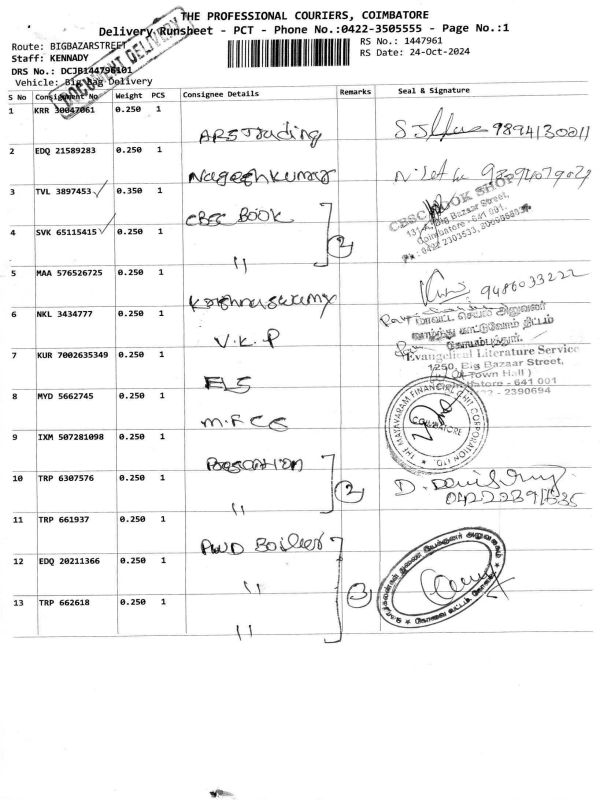 THE PROFESSIONAL COURIERS, COIMBATORE
Delivery Runsheet - PCT - Phone No.:0422-3505555 - Page No.:1
Route: BIGBAZARSTREET
RS No.: 1447961
Staff: KENNADY
RS Date: 24-Oct-2024
DRS No.: DCJB144796101
Vehicle: Big Bag Delivery
DOCUMENT DELIVERY
S No Consignment No Weight PCS Consignee Details Remarks Seal & Signature
1 KRR 30047061 0.250 1 ARS Trading
2 EDQ 21589283 0.250 1 Nageshkumar
3 TVL 3897453 0.350 1 CBSC BOOK
CBSC BOOK SHOP
Big Bazaar Street,
Coimbatore - 641 001
4 SVK 65115415 0.250 1 " 2
5 MAA 576526725 0.250 1 Krishnaswamy 9486033222
6 NKL 3434777 0.250 1 V.K.P
வாழ்ந்து காட்டுவோம் திட்டம்
கோயம்புத்தூர்.
7 KUR 7002635349 0.250 1 ELS
Evangelical Literature Service
1250, Big Bazaar Street,
(Town Hall)
Coimbatore - 641 001
2390694
8 MYD 5662745 0.250 1 M.F.C.G
THE MAYAVARAM FINANCIAL CHIT CORPORATION LTD.
COIMBATORE
9 IXM 507281098 0.250 1
10 TRP 6307576 0.250 1 " 2
11 TRP 661937 0.250 1 PWD Boiler
12 EDQ 20211366 0.250 1 " 3
13 TRP 662618 0.250 1 "